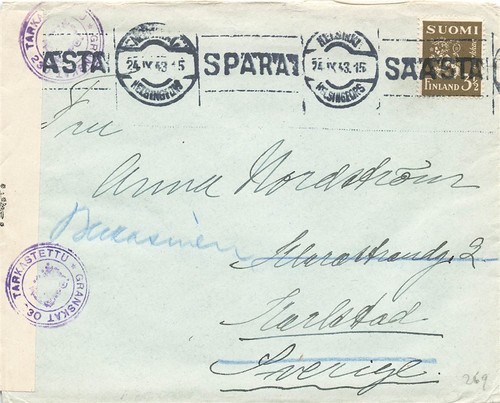 TARKASTETTU * GRANSKAT
SUOMI
HELSINKI
ÄSTÄ 24.IV.43.15 SPARA! 24.IV.43.15 SÄÄSTÄ
HELSINGFORS HELSINGFORS
FINLAND 3½
Fru
Anna Nordström
Klarastrandg. 2
Karlstad
Sverige.
TARKASTETTU * GRANSKAT 30
269